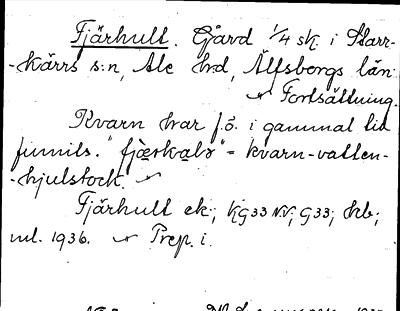 Fjärhult. Gård 1/4 sk. i Starr-
-kärrs s:n, Ale hd, Älfsborgs län
Fortsättning.
Kvarn har f.ö. i gammal tid
funnits. "fjærkalv" = kvarn-vatten-
-hjulstock.
Fjärhult ek.; KG33 NV; G33; hb;
ul. 1936. Prep. i.